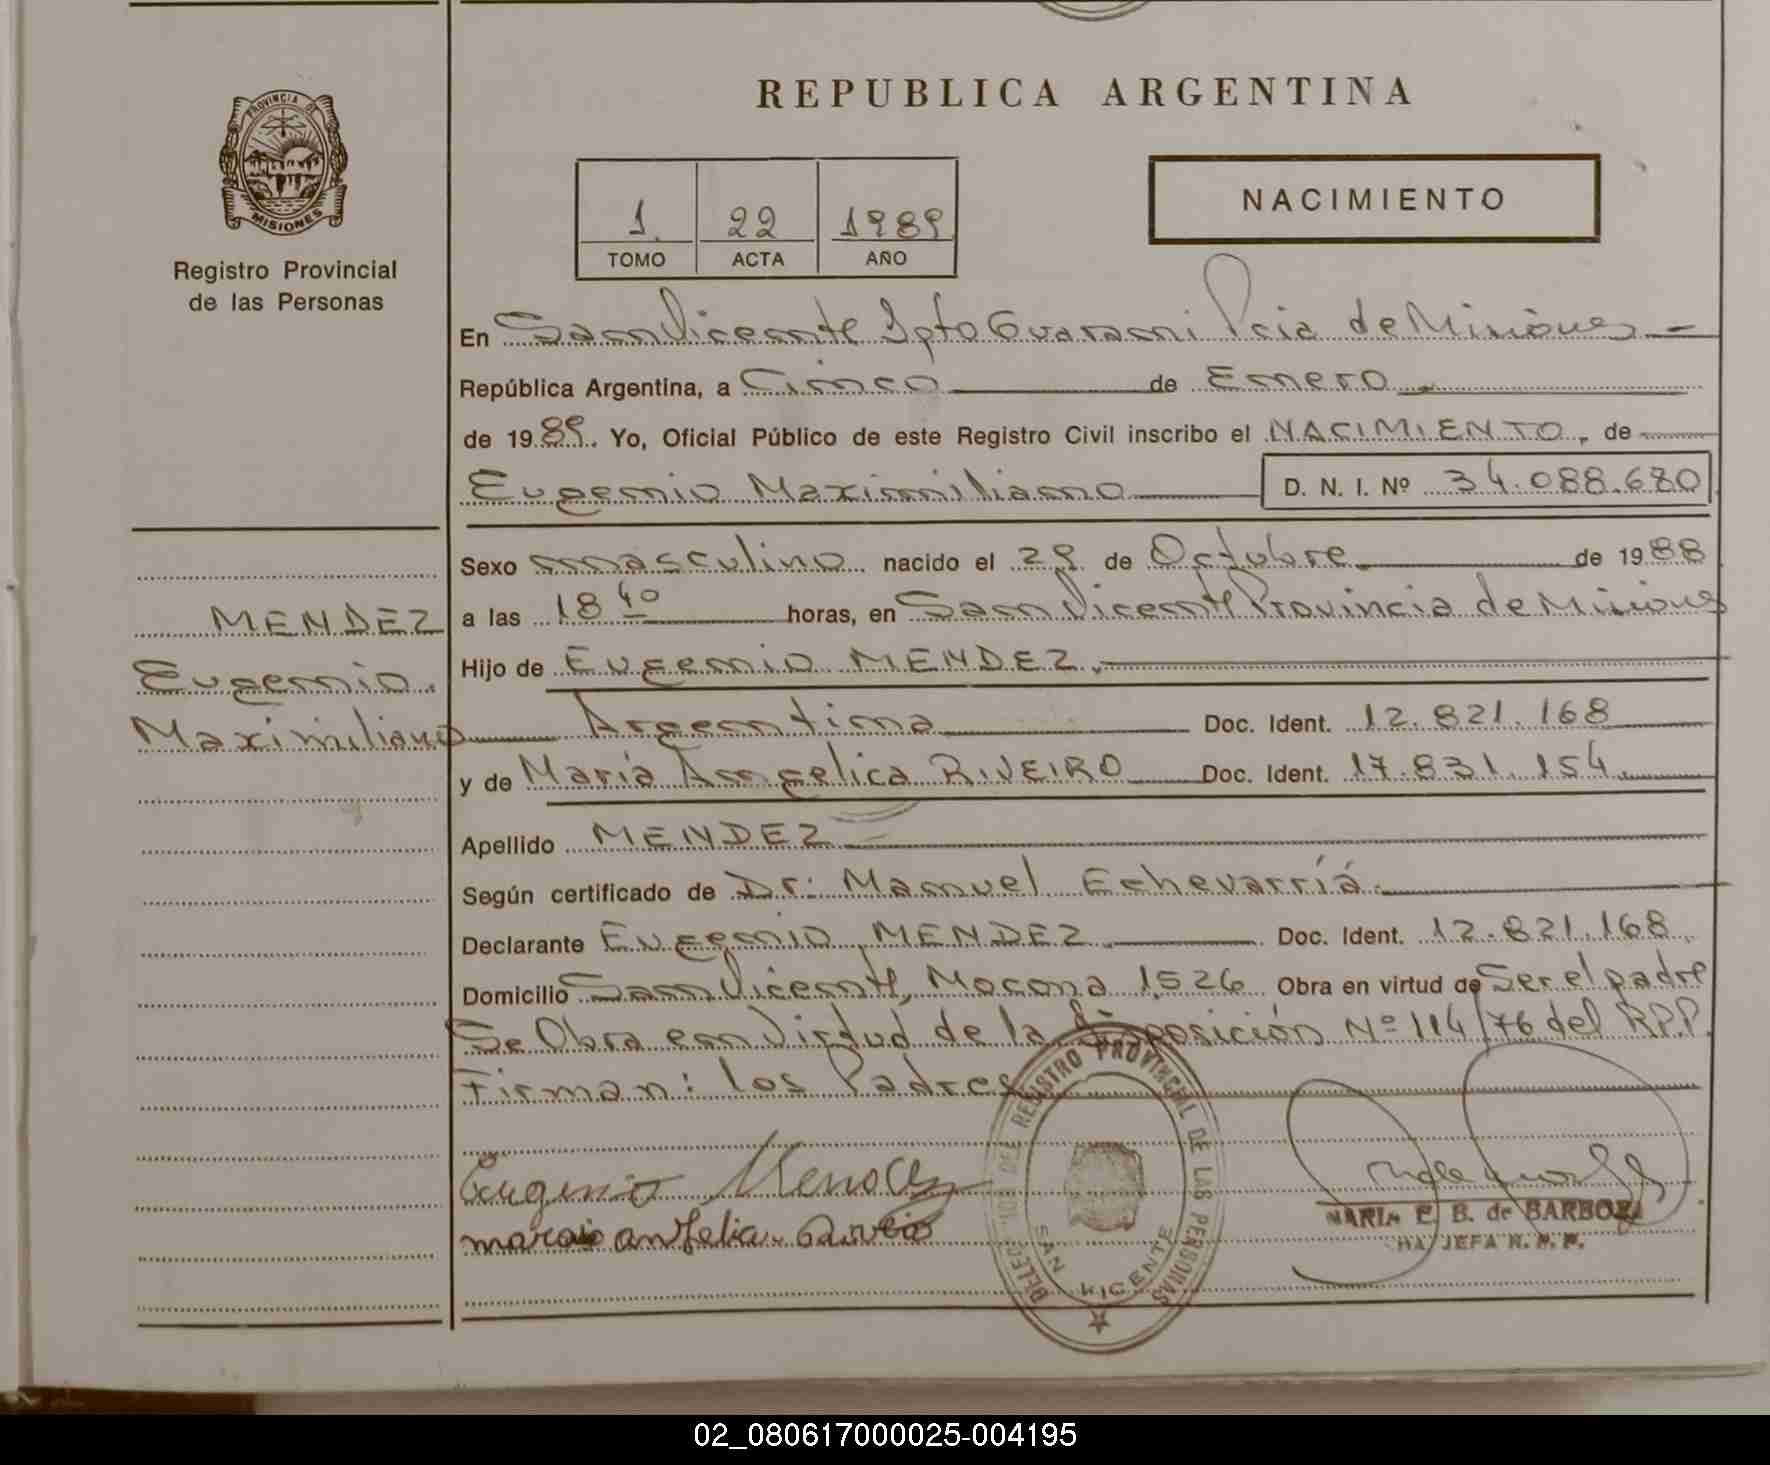 REPUBLICA ARGENTINA
PROVINCIA DE
MISIONES
Registro Provincial
de las Personas
1. 22 1989
TOMO ACTA AÑO
NACIMIENTO
En San Vicente Dpto Guarani Pcia de Misiones
República Argentina, a Cinco de Enero
de 1989. Yo, Oficial Público de este Registro Civil inscribo el NACIMIENTO, de
Eugenio Maximiliano D. N. I. Nº 34.088.680
Sexo masculino nacido el 29 de Octubre de 1988
a las 18 40 horas, en San Vicente Provincia de Misiones
Hijo de Eugenio MENDEZ.
Argentina Doc. Ident. 12.821.168
y de María Angelica RIVEIRO Doc. Ident. 17.831.154
Apellido MENDEZ
Según certificado de Dr: Manuel Echevarríá.
Declarante Eugenio MENDEZ Doc. Ident. 12.821.168
Domicilio San Vicente, Mocona 1526 Obra en virtud de Ser el padre
Se Obra en Virtud de la disposición Nº 114/76 del R.P.P.
Firman: los Padres
MENDEZ
Eugenio
Maximiliano
Eugenio Mendez
DELEGACION DEL REGISTRO PROVINCIAL DE LAS PERSONAS
SAN VICENTE
MARIA E. B. de BARBOZA
JEFA R. P. P.
02_080617000025-004195